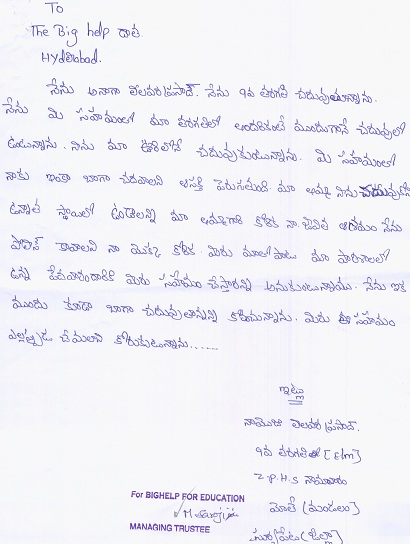 To
The Big help దాత.
Hyderabad.
నేను అనాగా లీలవర ప్రసాద్. నేను 9వ తరగతి చదువుతున్నాను.
నేను మి సహాయంలో మా తరగతిలో అందరికంటే ముందుగానే చదువులో
ఉంటున్నాను. నేను మా ఊరిలోనే చదువుకుంటున్నాను. మి సహాయంతో
నాకు ఇంకా బాగా చదవాలని ఆసక్తి పెరుగుతుంది. మా అమ్మ నేను
ఉన్నత స్థాయిలో ఉండాలన్ని మా అమ్మగారి కోరిక నా జీవిత ఆశయం నేను
పోలిస్ కావాలని నా యొక్క కోరిక మిరు మాతోపాటు మా పాఠశాలలో
ఉన్న పేదవారందారికి మిరు సహాయం చేస్తారన్ని అనుకుంటున్నాను. నేను ఇక
ముందు కూడా బాగా చదువుతానన్ని కోరుచున్నాను. మిరు ఈ సహాయం
ఎల్లప్పుడు చేయలని కోరుకుటున్నాను......
ఇట్లు
లీలవర ప్రసాద్.
9వ తరగతి [E/m]
Z.P.H.S నామవరం
మోతే (మండలం)
సూర్యపేట (జిల్లా)
For BIGHELP FOR EDUCATION
MANAGING TRUSTEE